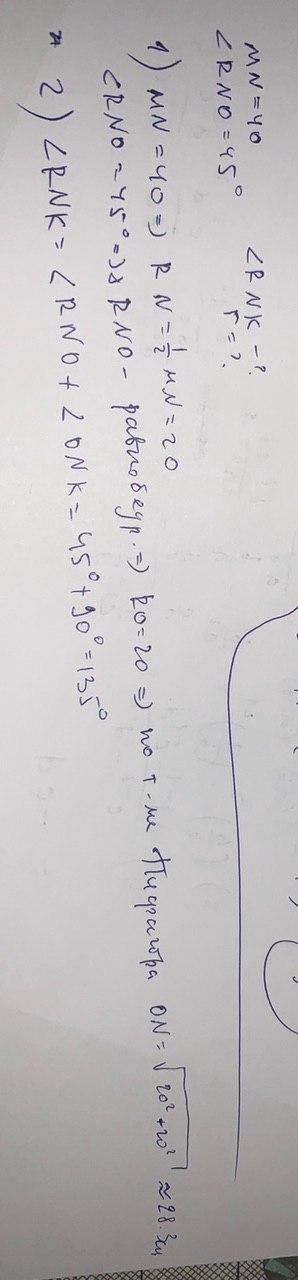 MN = 40 ∠RNK - ?
∠RNO = 45° r = ?
1) MN = 40 => RN = 1/2 MN = 20
∠RNO = 45° => RNO - равнобедр. => RO = 20 => по т-ме Пифагора ON = √20²+20² ≈ 28.3см
2) ∠RNK = ∠RNO + ∠ONK = 45° + 90° = 135°